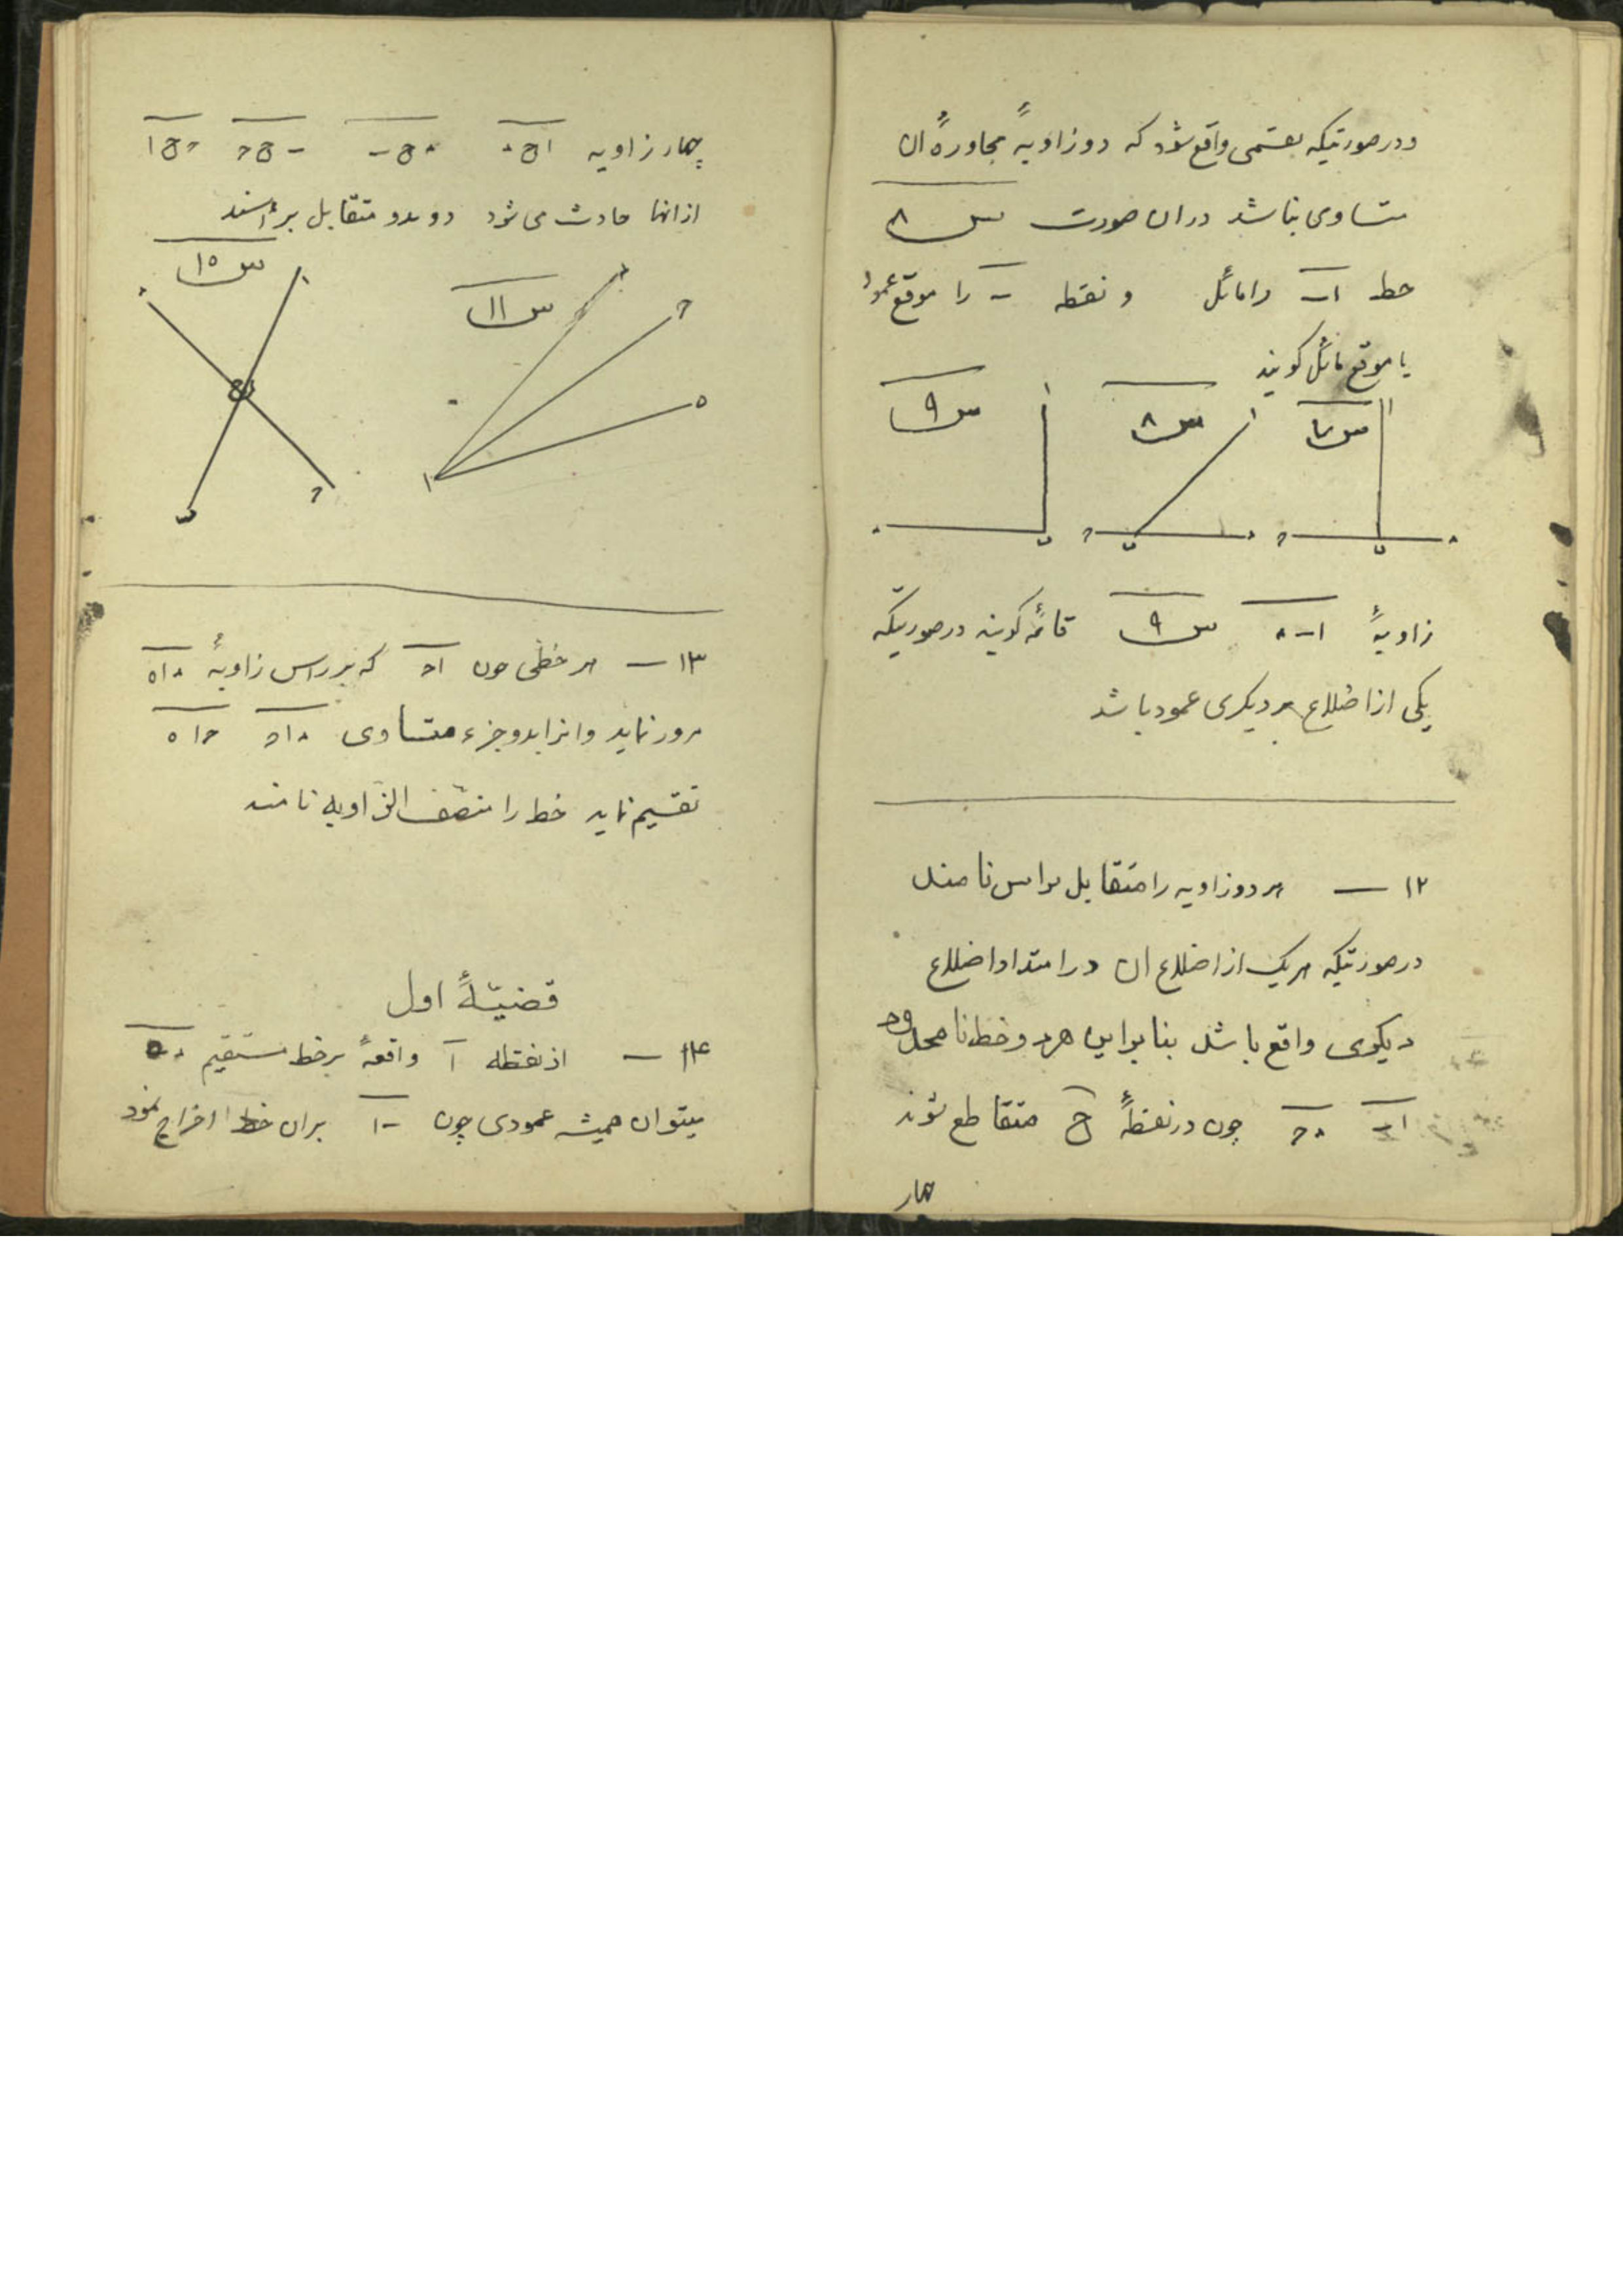 ودرصورتیکه بقسمی واقع شود که دو زاویهٔ مجاورهٔ ان
متساوی نباشد دران صورت سـ ۸
خط اب را مائل و نقطه ب را موقع عمود
یا موقع مائل کویند
سـ ۷ سـ ۸ سـ ۹
زاویهٔ اب۸ سـ ۹ قائمه کویند درصورتیکه
یکی از اضلاع بر دیکری عمود باشد
۱۲ — هر دو زاویه را متقابل براس نامند
درصورتیکه هریک از اضلاع ان در امتداد اضلاع
دیکری واقع باشد بنابراین هر دو خط نامحدود
اب ۸ح چون در نقطهٔ ع متقاطع شوند
چهار
چهار زاویه اع۸ ۸عب بعح حعا
از انها حادث می شود دو بدو متقابل براسند
سـ ۱۱ سـ ۱۰
۱۳ — هر خطی چون اح که بر راس زاویهٔ ۸اه
مرور نماید وانرا بدو جزء متساوی ۸اح حاه
تقسیم نماید خط را منصف الزاویه نامند
قضیّهٔ اول
۱۴ — از نقطه ا واقعهٔ بر خط مستقیم ۸ه
میتوان همیشه عمودی چون اب بران خط اخراج نمود